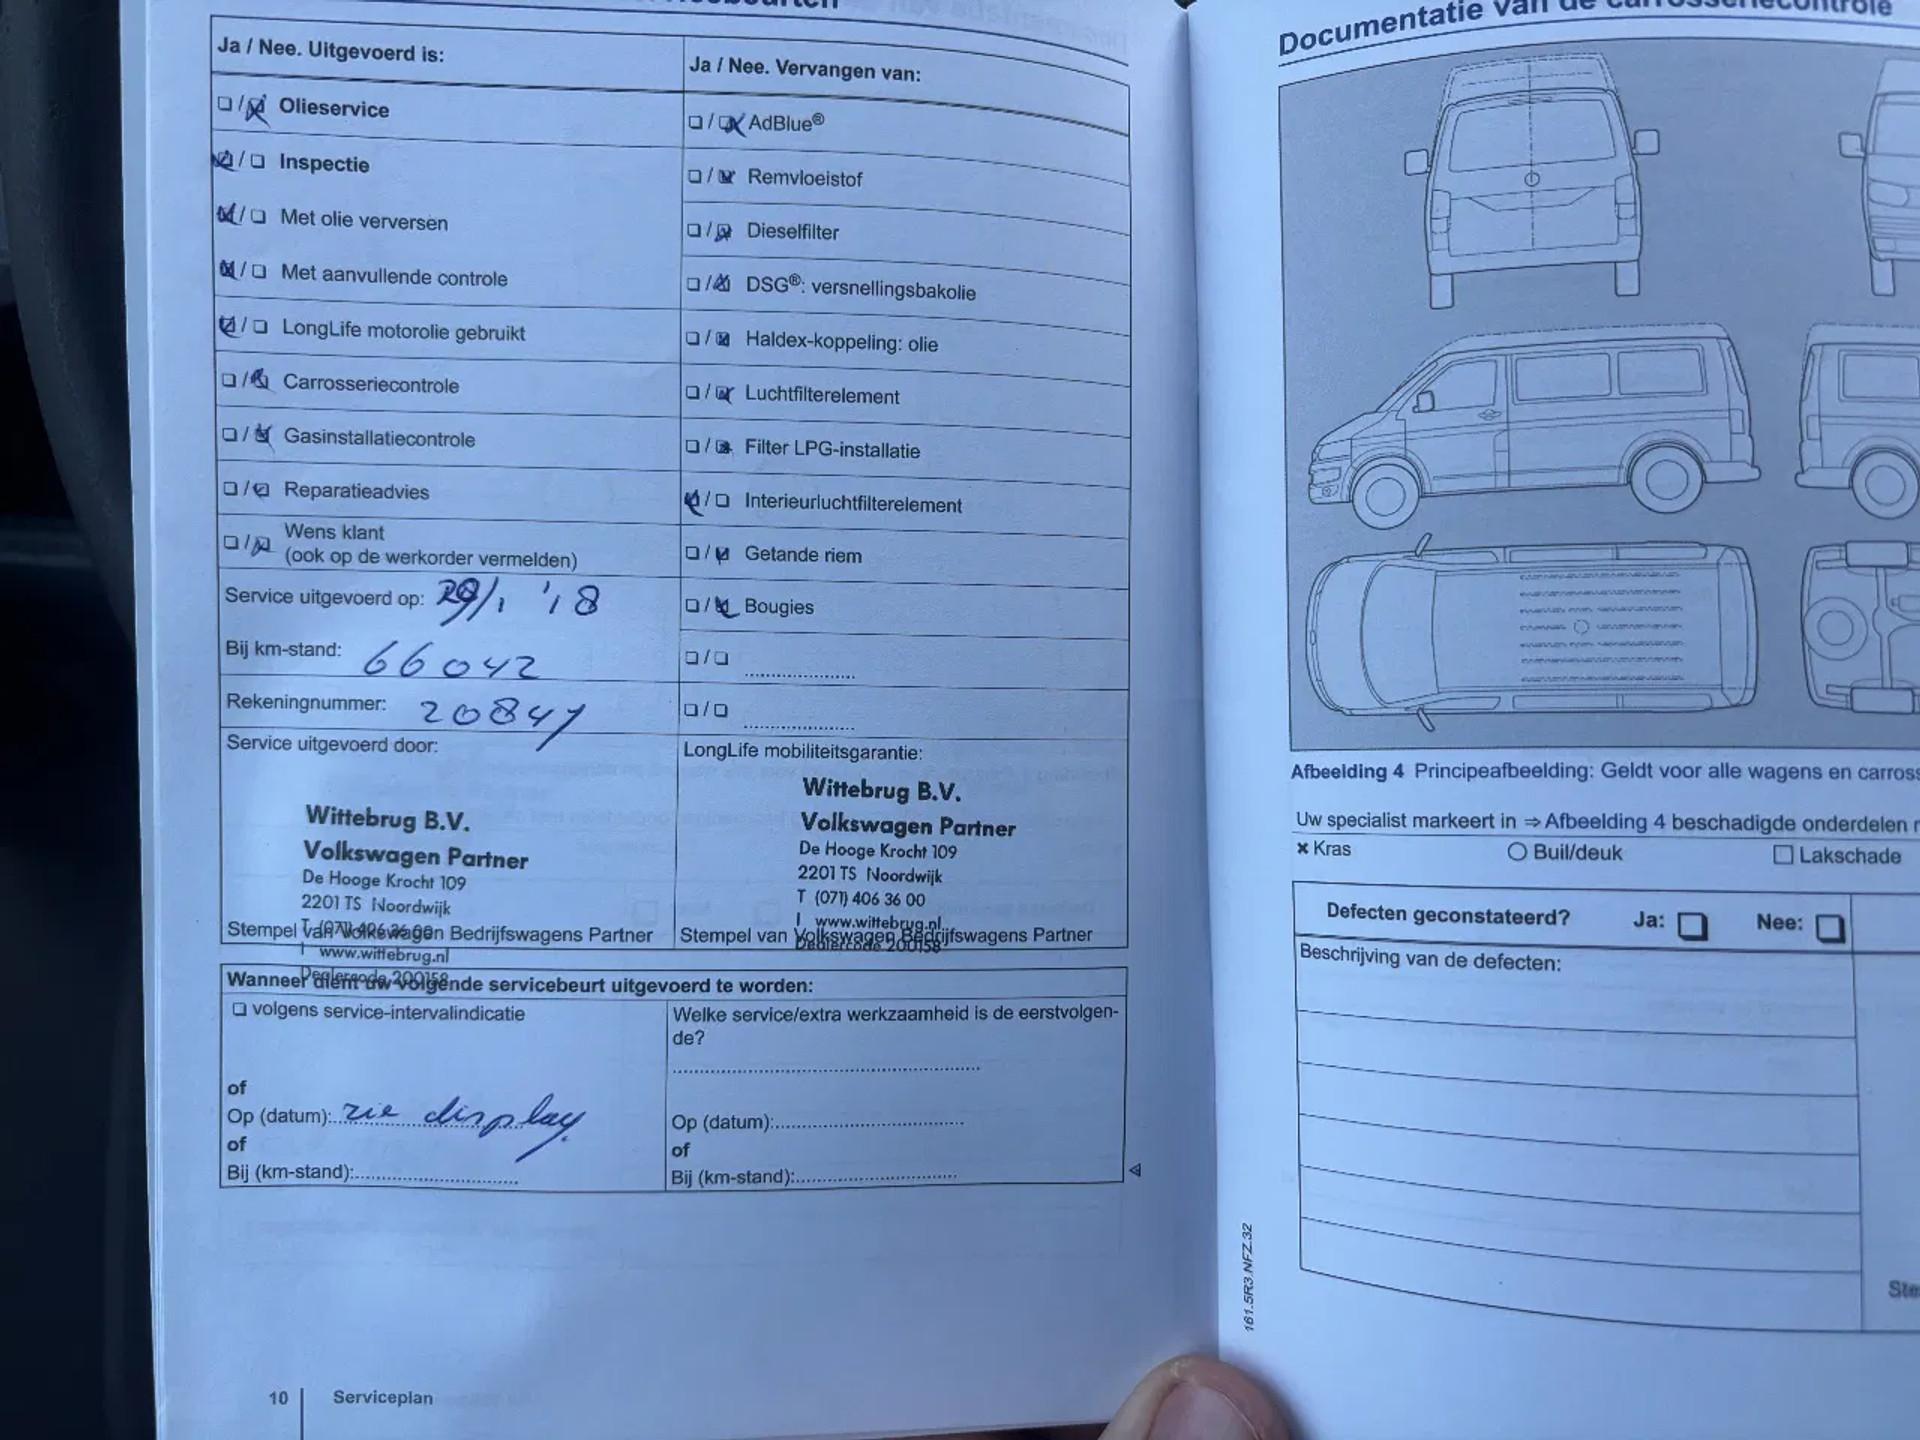 Ja / Nee. Uitgevoerd is:
☐/☒ Olieservice
☒/☐ Inspectie
☒/☐ Met olie verversen
☒/☐ Met aanvullende controle
☒/☐ LongLife motorolie gebruikt
☐/☒ Carrosseriecontrole
☐/☒ Gasinstallatiecontrole
☐/☒ Reparatieadvies
☐/☒ Wens klant
(ook op de werkorder vermelden)
Service uitgevoerd op: 29/1 '18
Bij km-stand: 66042
Rekeningnummer: 20847
Service uitgevoerd door:
Wittebrug B.V.
Volkswagen Partner
De Hooge Krocht 109
2201 TS Noordwijk
T (071) 406 36 00
Stempel van Volkswagen Bedrijfswagens Partner
I www.wittebrug.nl
Dealercode 200158
Ja / Nee. Vervangen van:
☐/☒ AdBlue®
☐/☒ Remvloeistof
☐/☒ Dieselfilter
☐/☒ DSG®: versnellingsbakolie
☐/☒ Haldex-koppeling: olie
☐/☒ Luchtfilterelement
☐/☒ Filter LPG-installatie
☒/☐ Interieurluchtfilterelement
☐/☒ Getande riem
☐/☒ Bougies
☐/☐
☐/☐
LongLife mobiliteitsgarantie:
Wittebrug B.V.
Volkswagen Partner
De Hooge Krocht 109
2201 TS Noordwijk
T (071) 406 36 00
I www.wittebrug.nl
Stempel van Volkswagen Bedrijfswagens Partner
Dealercode 200158
Wanneer dient uw volgende servicebeurt uitgevoerd te worden:
☐ volgens service-intervalindicatie
of
Op (datum): zie display
of
Bij (km-stand):
Welke service/extra werkzaamheid is de eerstvolgen-
de?
Op (datum):
of
Bij (km-stand):
10 Serviceplan
Documentatie van de carrosseriecontrole
Afbeelding 4 Principeafbeelding: Geldt voor alle wagens en
Uw specialist markeert in ⇒ Afbeelding 4 beschadigde onderdelen
× Kras ○ Buil/deuk ☐ Lakschade
Defecten geconstateerd? Ja: ☐ Nee: ☐
Beschrijving van de defecten:
161.5R3.NFZ.32